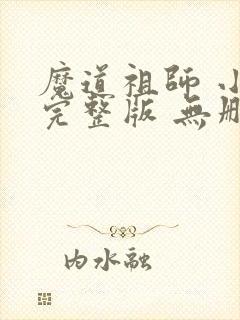 魔道祖師 小
完整版 無刪
內水融